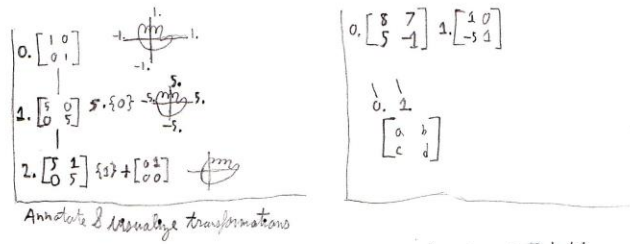 1.
0. [1 0 0 1] -1. 1.
-1.
5.
1. [5 0 0 5] 5.{0} -5. 5.
-5.
2. [5 1 0 5] {1} + [0 1 0 0]
Annotate & visualize transformations
0. [8 7 5 -1] 1. [1 0 -5 1]
0. 1.
[a b c d]